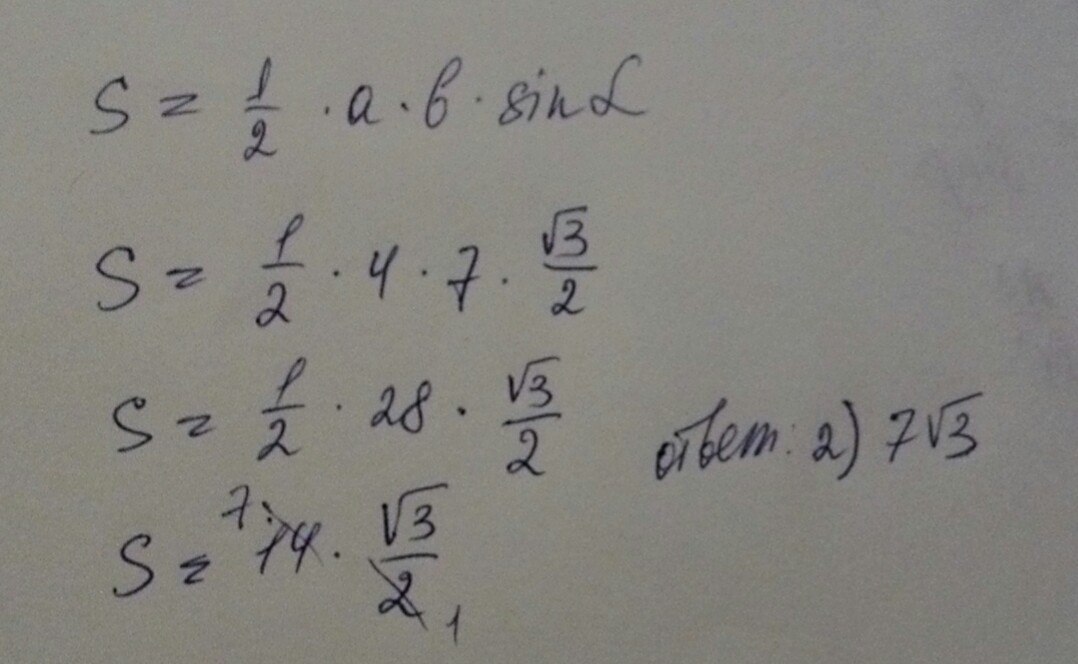 S = 1/2 · a · b · sin α
S = 1/2 · 4 · 7 · √3/2
S = 1/2 · 28 · √3/2
ответ: 2) 7√3
7
S = 14 · √3/2
1